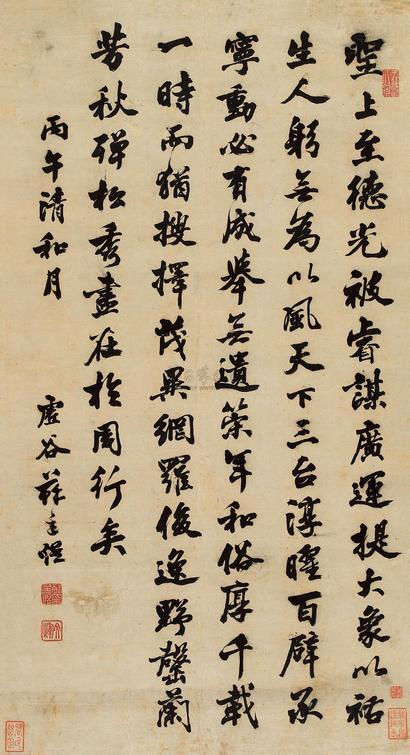 聖上至德光被睿謀廣運提大象以祐
生人躬無為以風天下三台淳曜百辟承
寧動必有成舉無遺策年和俗厚千載
一時而猶搜擇茂異網羅俊逸野罄蘭
芳秋殫松秀盡在於周行矣
丙午清和月
虛谷蔣